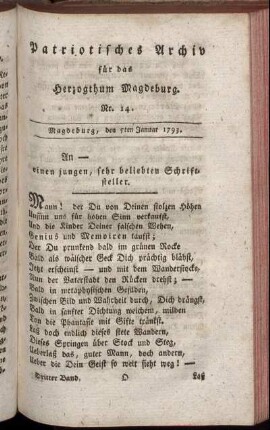 Patriotisches Archiv
für das
Herzogthum Magdeburg.
Nr. 14.
Magdeburg, den 5ten Januar 1793.
An —
einen jungen, sehr beliebten Schrift-
steller.
Mann! der Du von Deinen stolzen Höhen
Unsinn uns für hohen Sinn verkaufst,
Und die Kinder Deiner falschen Wehen,
Genius und Memoiren taufst;
Der Du prunkend bald im grünen Rocke
Bald als wälscher Geck Dich prächtig blähst,
Jetzt erscheinst — und mit dem Wanderstocke,
Nun der Vaterstadt den Rücken drehst;
Bald in metaphysischen Gefilden,
Zwischen Bild und Wahrheit durch, Dich drängst,
Bald in sanfter Dichtung weichern, milden
Ton die Phantasie mit Gifte tränkst.
Laß doch endlich dieses stete Wandern,
Dieses Springen über Stock und Steg,
Ueberlaß das, guter Mann, doch andern,
Ueber die Dein Geist so weit sieht weg! —
Zweiter Band. O Laß